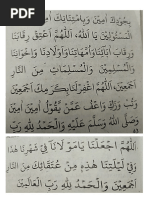 بِجُودِكَ اٰمِيْنَ وَبِاَمِيْنَائِكَ اٰمِيْنَ
الْمَسْئُوْلِيْنَ يَا اَللهُ، اَللّٰهُمَّ اَعْتِقْ رِقَابَنَا
وَرِقَابَ اٰبَائِنَا وَاُمَّهَاتِنَا وَاَوْلَادِنَا وَاِخْوَانِنَا
وَالْمُسْلِمِيْنَ وَالْمُسْلِمَاتِ مِنَ النَّارِ
اَجْمَعِيْنَ بِرَحْمَتِكَ
وَاعْفُ عَمَّنْ يَقُوْلُ اٰمِيْنَ اٰمِيْنَ
وَسَلَامٌ عَلَيْهِ وَالْحَمْدُ لِلّٰهِ رَبِّ
اَللّٰهُمَّ اجْعَلْنَا يَا مَوْلَانَا فِيْ شَهْرِنَا هٰذَا
وَفِيْ لَيْلَتِنَا هٰذِهِ مِنْ عُتَقَائِكَ مِنَ النَّارِ
اَجْمَعِيْنَ وَالْحَمْدُ لِلّٰهِ رَبِّ الْعَالَمِيْنَ